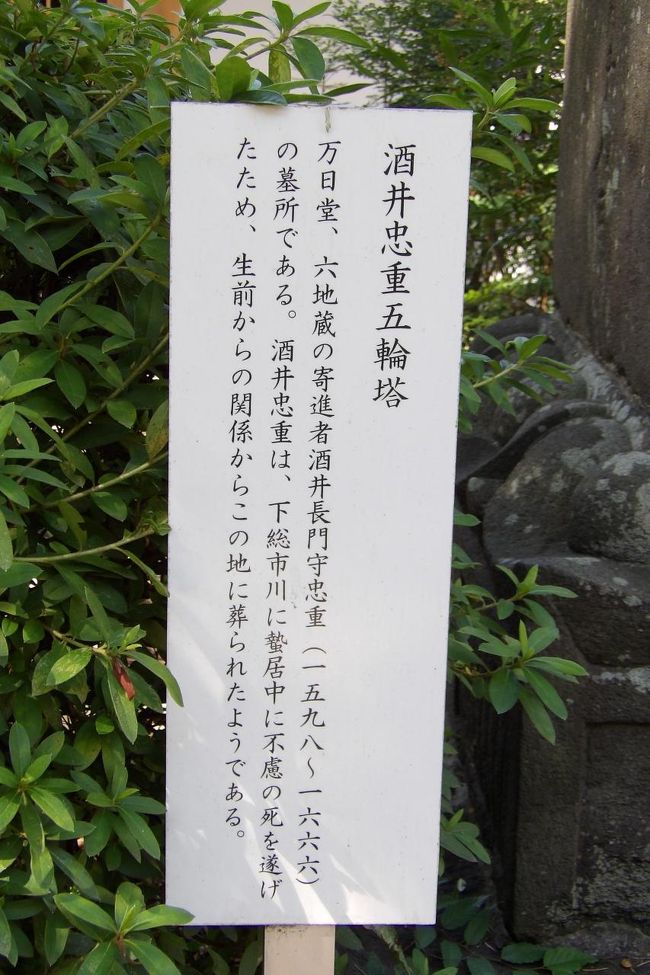 酒井忠重五輪塔
万日堂、六地蔵の寄進者酒井長門守忠重（一五九八〜一六六六）
の墓所である。酒井忠重は、下総市川に蟄居中に不慮の死を遂げ
たため、生前からの関係からこの地に葬られたようである。